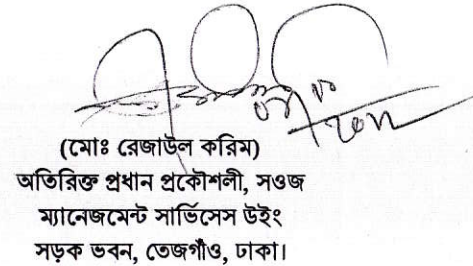 (মোঃ রেজাউল করিম)
অতিরিক্ত প্রধান প্রকৌশলী, সওজ
ম্যানেজমেন্ট সার্ভিসেস উইং
সড়ক ভবন, তেজগাঁও, ঢাকা।